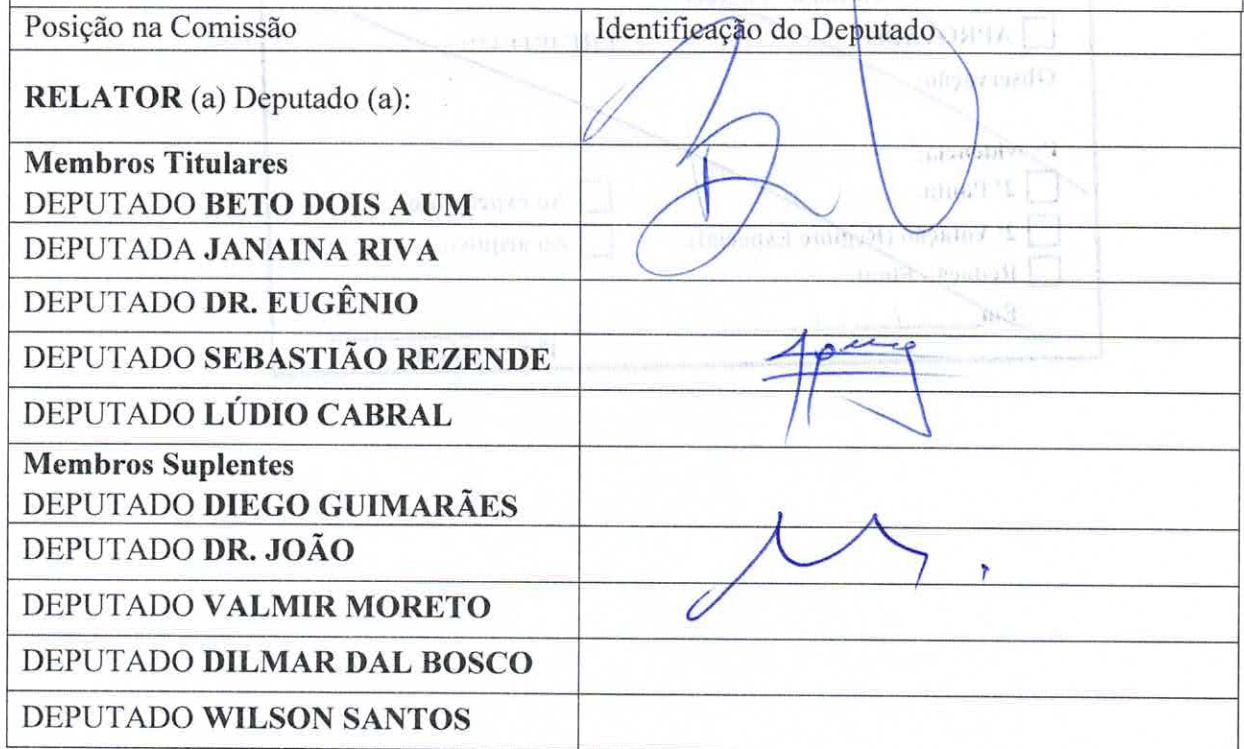 Posição na Comissão Identificação do Deputado
RELATOR (a) Deputado (a):
Membros Titulares
DEPUTADO BETO DOIS A UM
DEPUTADA JANAINA RIVA
DEPUTADO DR. EUGÊNIO
DEPUTADO SEBASTIÃO REZENDE
DEPUTADO LÚDIO CABRAL
Membros Suplentes
DEPUTADO DIEGO GUIMARÃES
DEPUTADO DR. JOÃO
DEPUTADO VALMIR MORETO
DEPUTADO DILMAR DAL BOSCO
DEPUTADO WILSON SANTOS